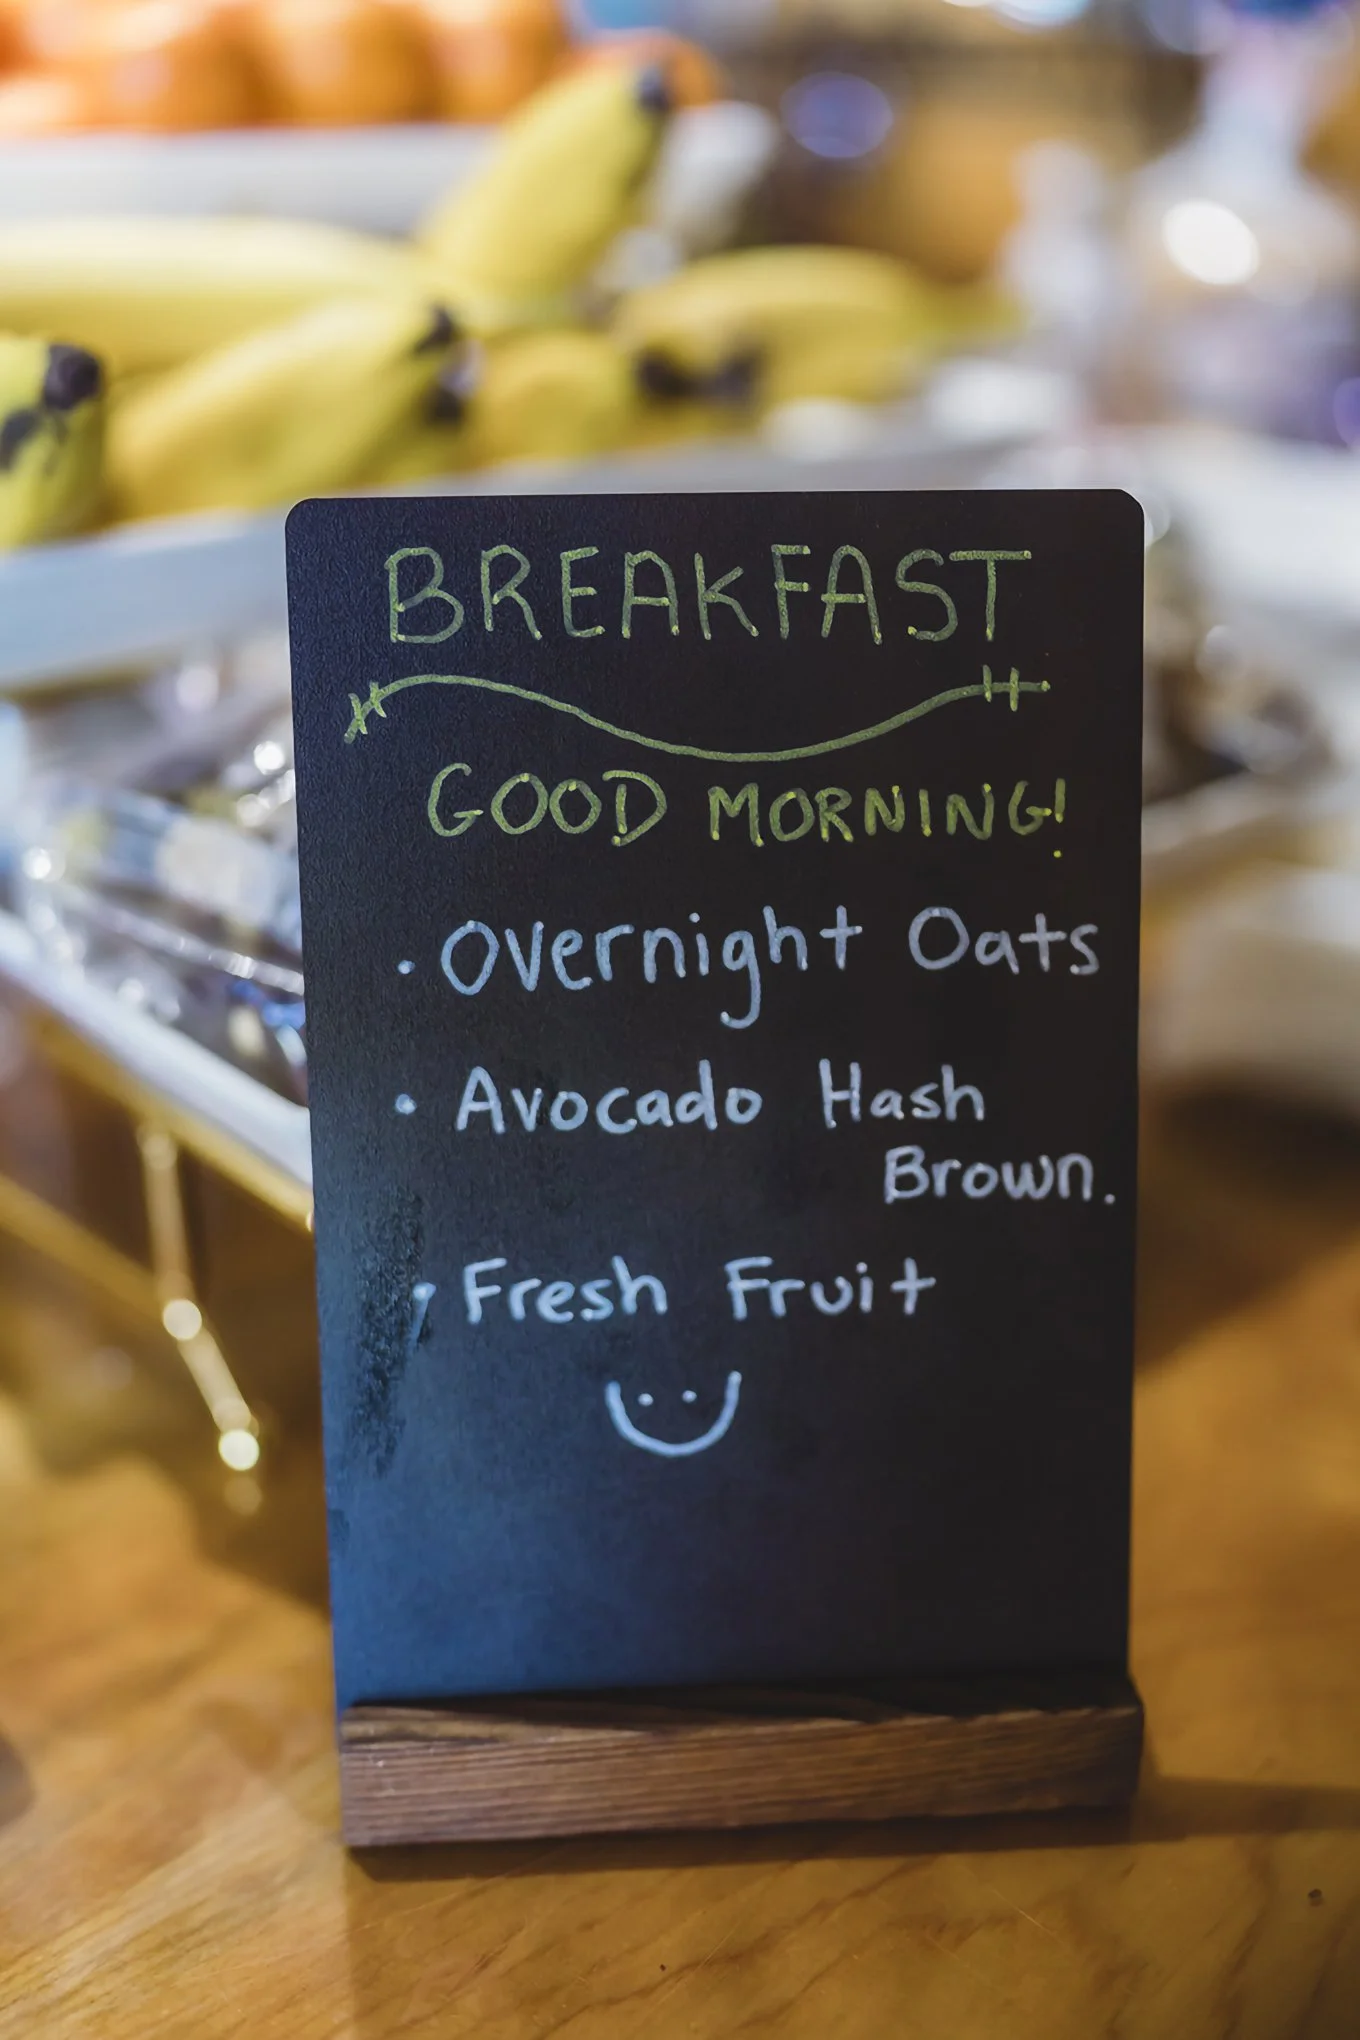 BREAKFAST
GOOD MORNING!
· Overnight Oats
· Avocado Hash
Brown.
· Fresh Fruit